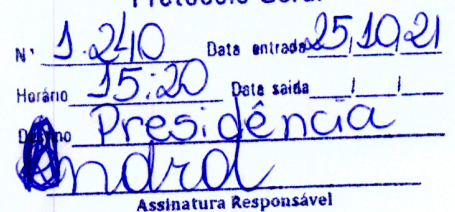 Protocolo Geral
Nº 1.240 Data entrada 25/10/21
Horário 15:20 Data saída___/___/___
Destino Presidência
Assinatura Responsável